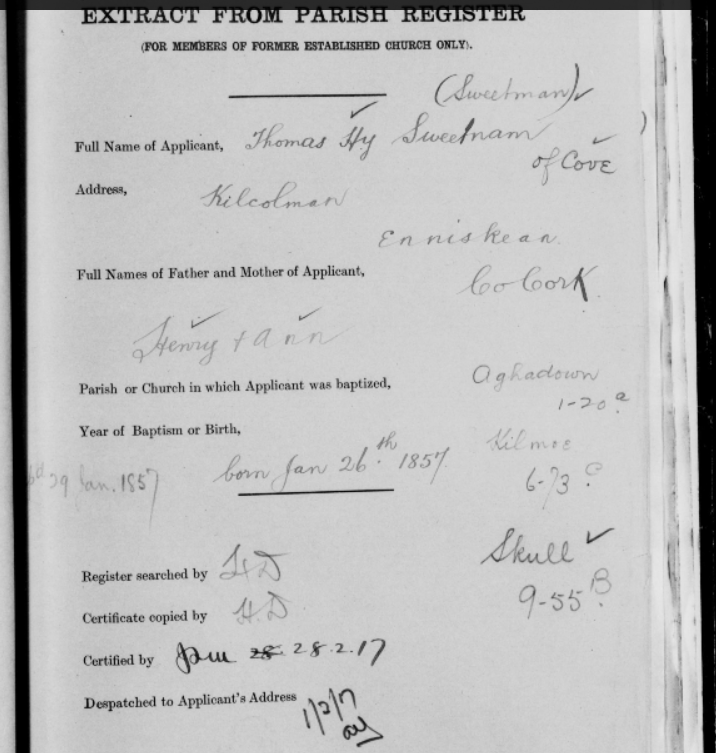 EXTRACT FROM PARISH REGISTER
(FOR MEMBERS OF FORMER ESTABLISHED CHURCH ONLY).
(Sweetman)
Full Name of Applicant, Thomas Hy Sweetnam
of Cove
Address,
Kilcolman
Enniskean
Full Names of Father and Mother of Applicant,
Co Cork
Henry + Ann
Parish or Church in which Applicant was baptized,
Aghadown
1-20 a
Year of Baptism or Birth,
Kilmoe
born Jan 26th. 1857
bd 29 Jan. 1857
6-73 C
Skull
9-55 B
Register searched by HD
Certificate copied by HD
Certified by 28. 28.2.17
Despatched to Applicant's Address